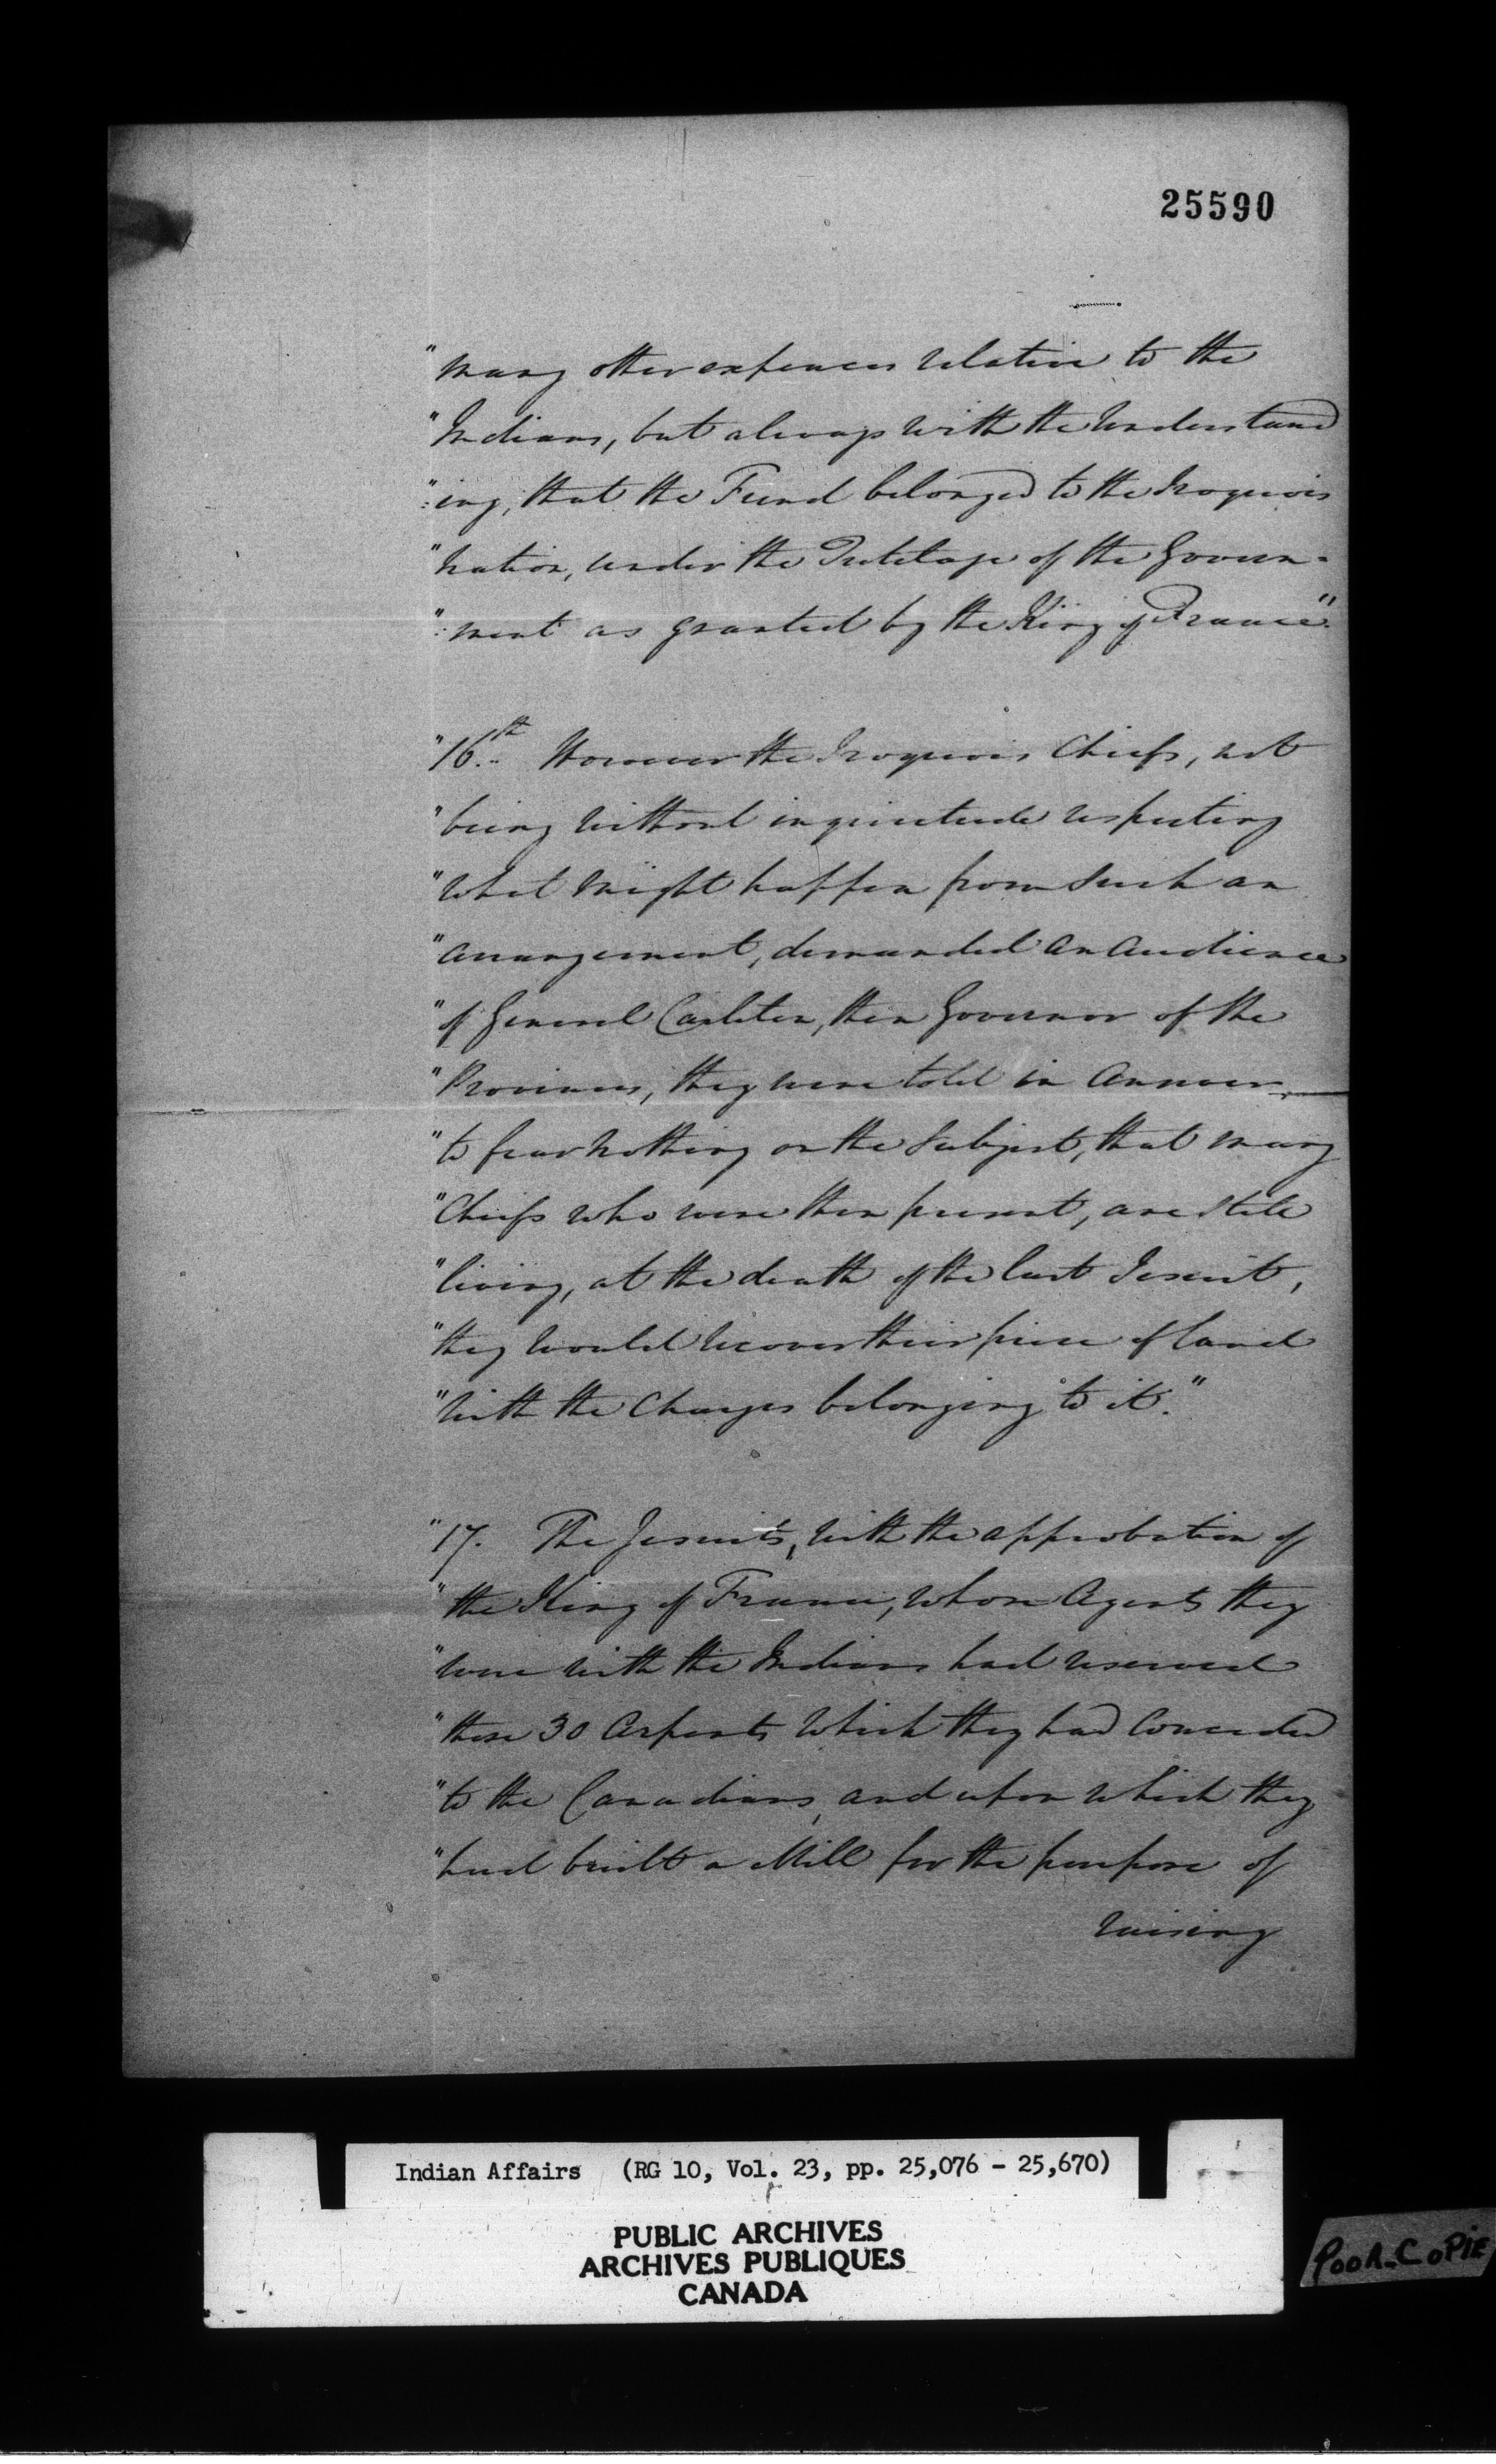 25590
"many other expences relative to the
"Indians, but always with the Understand
":ing, that the Fund belonged to the Iroquois
"Nation, under the Tutelage of the Govern-
":ment as granted by the King of France."
"16.th However the Iroquois Chiefs, not
"being without inquietude respecting
"what might happen from Such an
"arrangement, demanded an Audience
"of General Carleton, then Governor of the
"Province, they were told in Answer
"to fear Nothing on the Subject, that many
"Chiefs who were then present, are Still
"living, at the death of the last Jesuit,
"they would recover their piece of land
"with the Charges belonging to it."
"17. The Jesuits, with the approbation of
"the King of France, whose Agents they
"were with the Indians had reserved
"these 30 Arpents which they had Conceded
"to the Canadians, and upon which they
"had built a Mill for the purpose of
raising
Indian Affairs (RG 10, Vol. 23, pp. 25,076 - 25,670)
PUBLIC ARCHIVES
ARCHIVES PUBLIQUES
CANADA
POOR COPIE